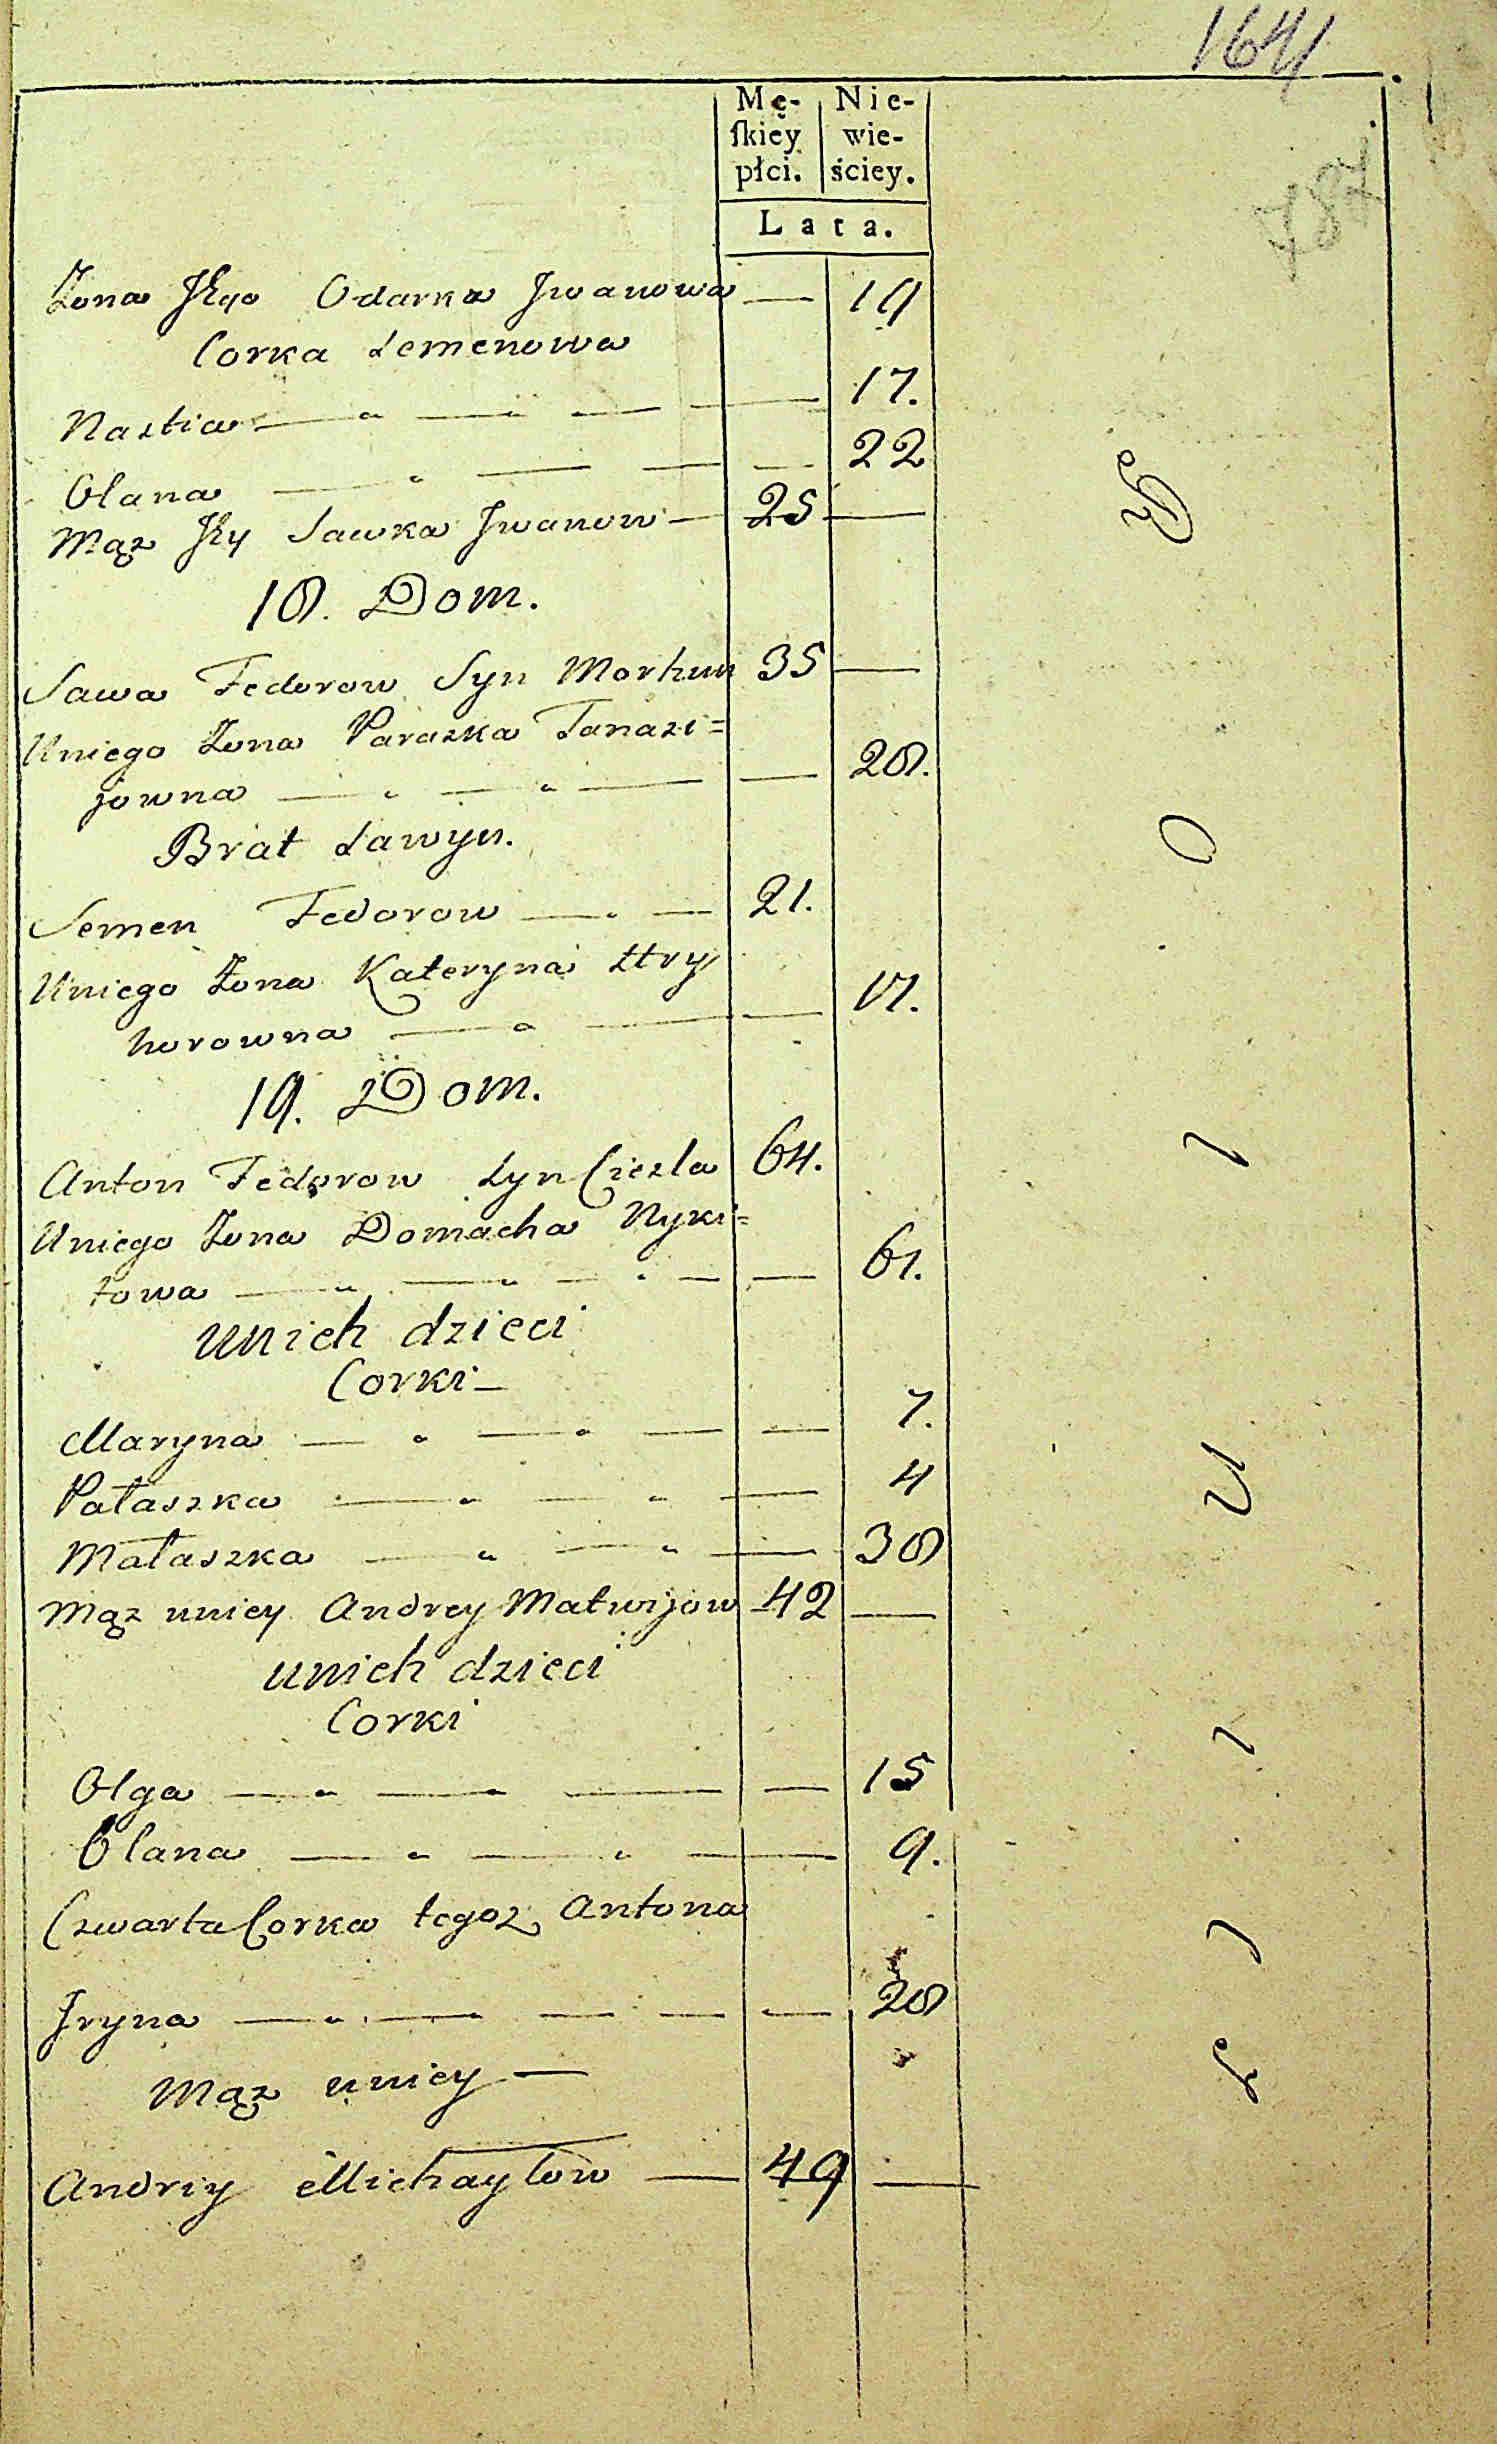 1641
Mę- Nie-
ſkiey wie-
płci. ściey.
Lata.
787
Żona Jego Odarka Jwanowa — 19
Corka Semenowa
Nastia — 17.
Olana — 22
Mąz Jey Sawka Jwanow — 25 —
18. Dom.
Sawa Fedorow Syn Morhun 35 —
Uniego Żona Paraska Tanasi=
jowna — 28.
Brat Sawyn.
Semen Fedorow — 21.
Uniego Żona Kateryna Hry
horowna — 17.
19. Dom.
Anton Fedorow Syn Ciesla 64.
Uniego Żona Domacha Nyki=
towa — 61.
unich dzieci
Corki —
Maryna — 7.
Pałaszka — 4
Małaszka — 38
Mąz uniey Andrey Matwijow 42 —
unich dzieci
Corki
Olga — 15
Olana — 9.
Czwarta Corka tegoz Antona
Jryna — 28
Mąz uniey —
Andriy Michayłow — 49 —